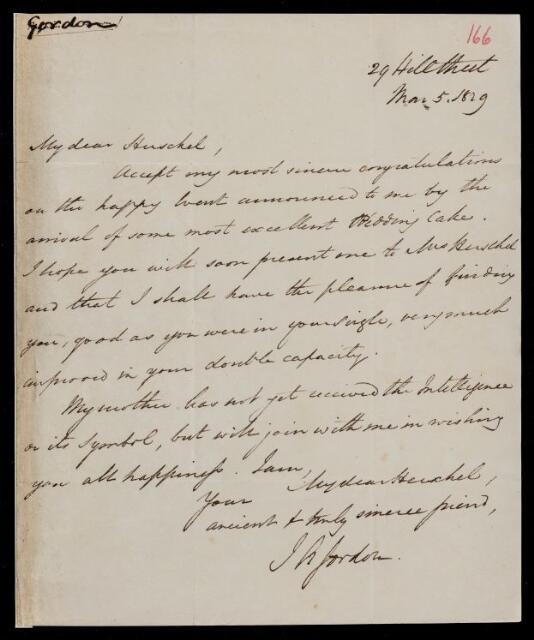 Gordon
166
29 Hill Street
Mar 5. 1829
My dear Herschel,
Accept my most sincere congratulations
on the happy Event announced to me by the
arrival of some most excellent Wedding Cake.
I hope you will soon present me to Mrs Herschel
and that I shall have the pleasure of finding
you, good as you were in your single, very much
improved in your double capacity.
My mother has not yet received the Intelligence
or its Symbol, but will join with me in wishing
you all happiness. I am,
My dear Herschel,
Your
ancient & truly sincere friend,
J A Gordon.